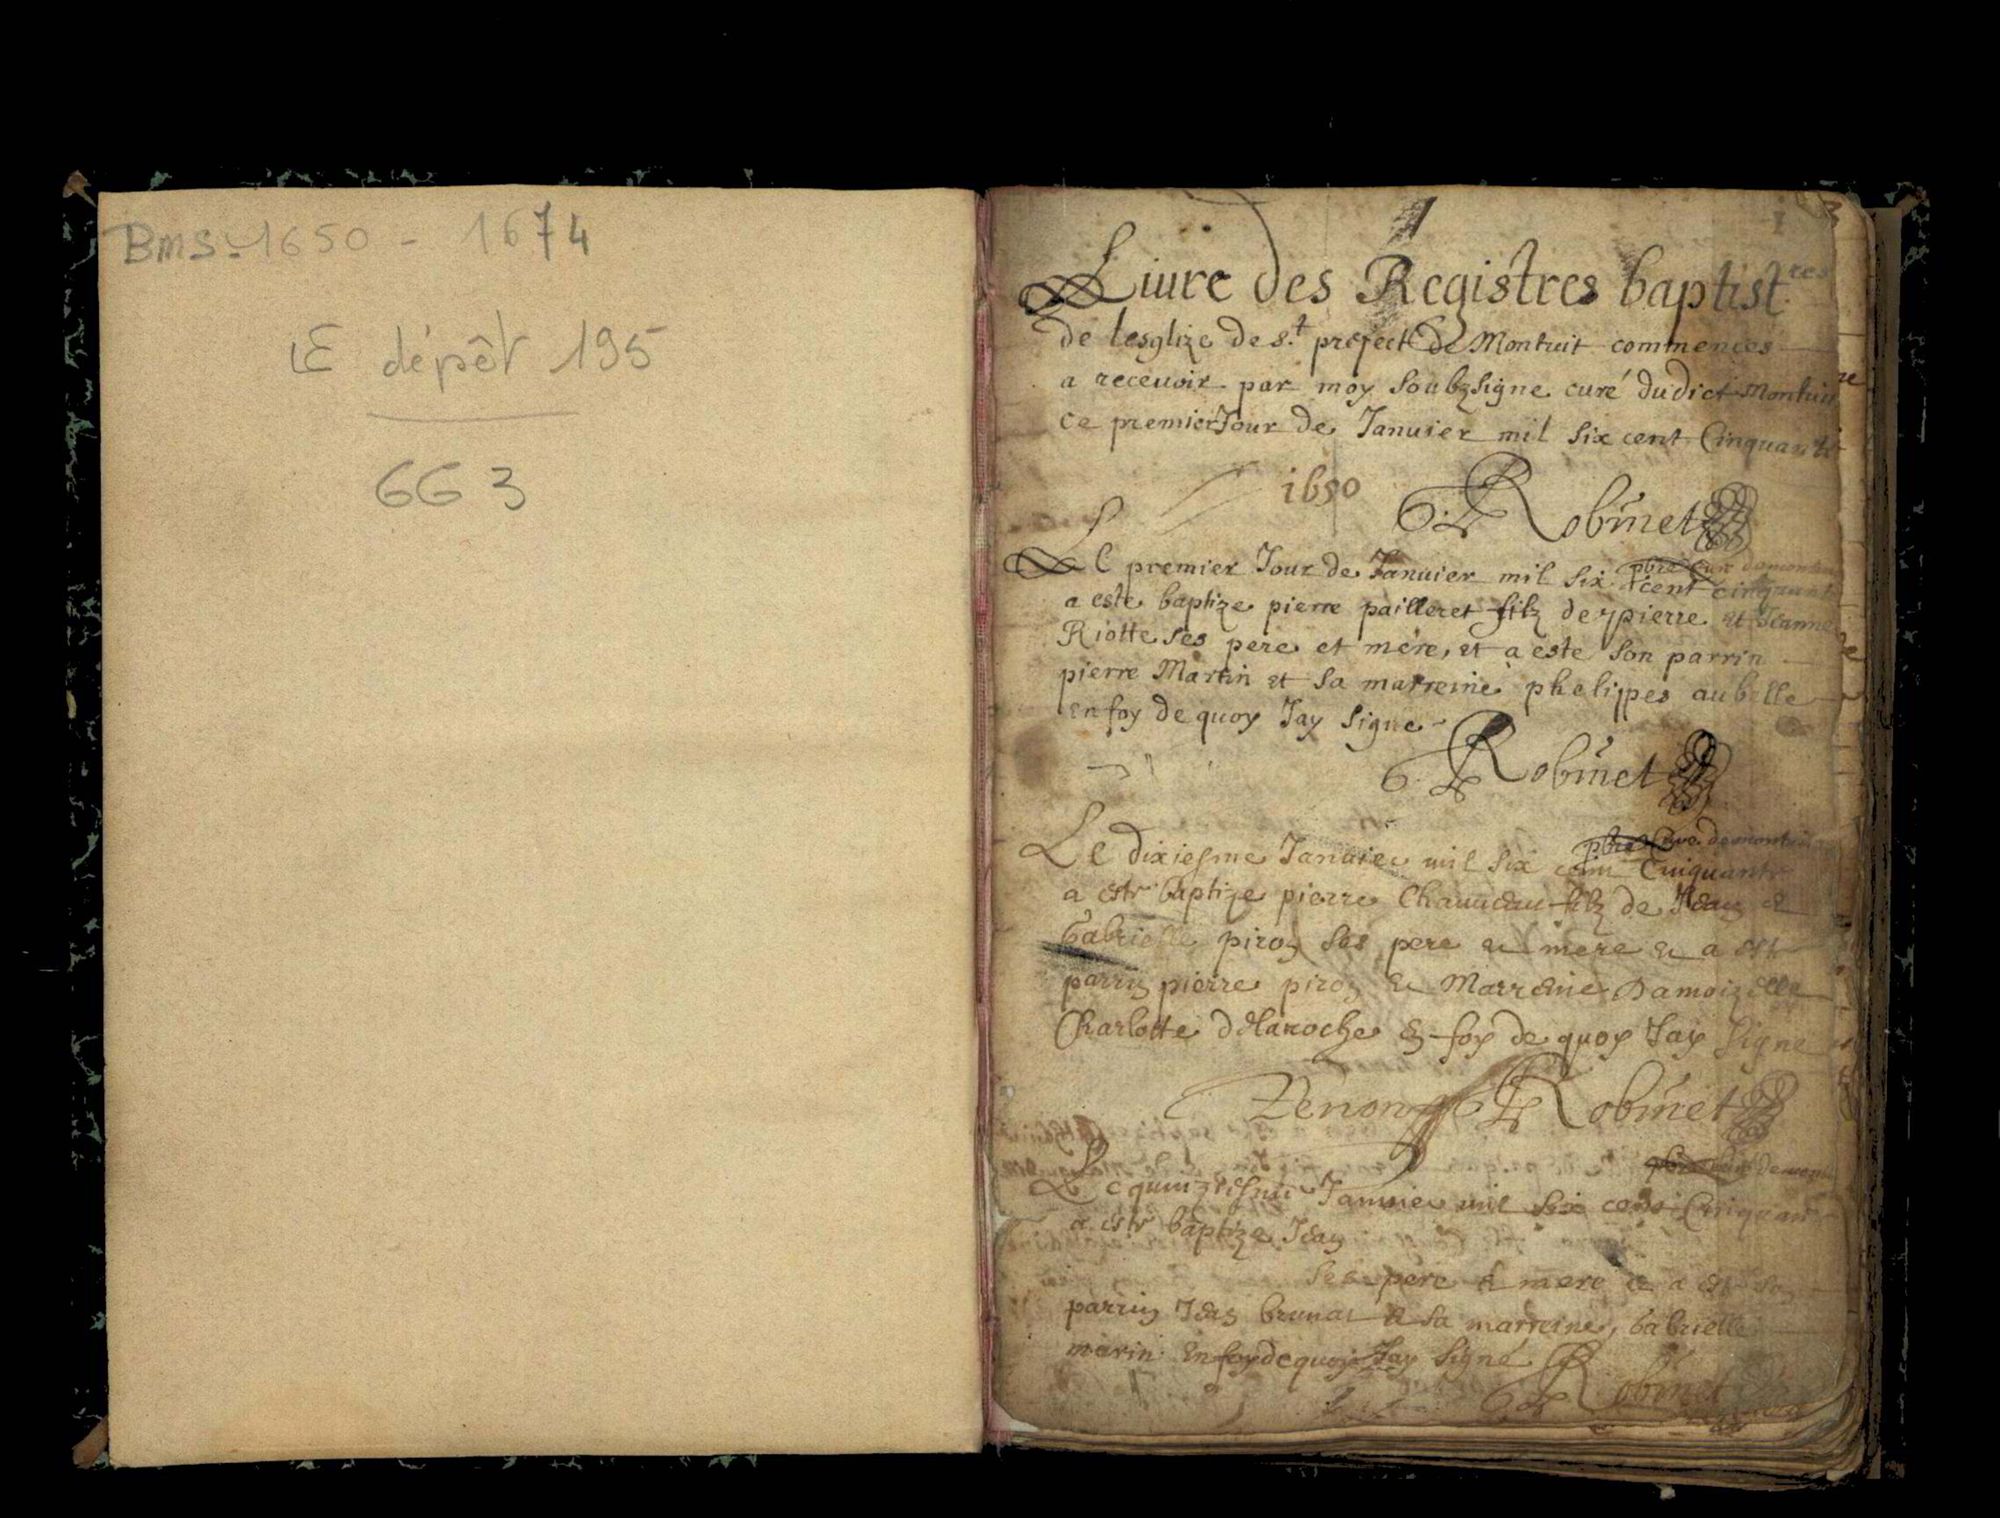 BMS. 1650 - 1674
E dépôt 195
GG 3
1
1
Liure des Registres baptist.res
de lesglize de s.t prefect de Montuit commences
a receuoir par moy soubzsigne curé dudict Montuit
Ce premier Jour de Januier mil six cent Cinquante
1650
Robinet
pbre curé de
Le premier Jour de Januier mil six cent cinquante
a este baptize pierre pailleret filz de pierre et Jeanne
Riotte ses pere et mere, et a este son parrin
pierre Martin et sa marreine phelippes aubelle
En foy de quoy Jay signe
Robinet
pbre curé de
Le dixiesme Januier mil six cent Cinquante
a este baptize pierre Chauueau filz de Jean et
Gabrielle piron ses pere et mere et a est
parrin pierre piron et Marreine Damoizelle
Charlotte delaroche En foy de quoy Jay signe
Zenon Robinet
pbre curé de
Le quinziesme Januier mil six cent Cinquan
a este baptize Jean
ses pere et mere et a est son
parrin Jean brunat et sa marreine, Gabrielle
marin En foy de quoy Jay signé
Robinet